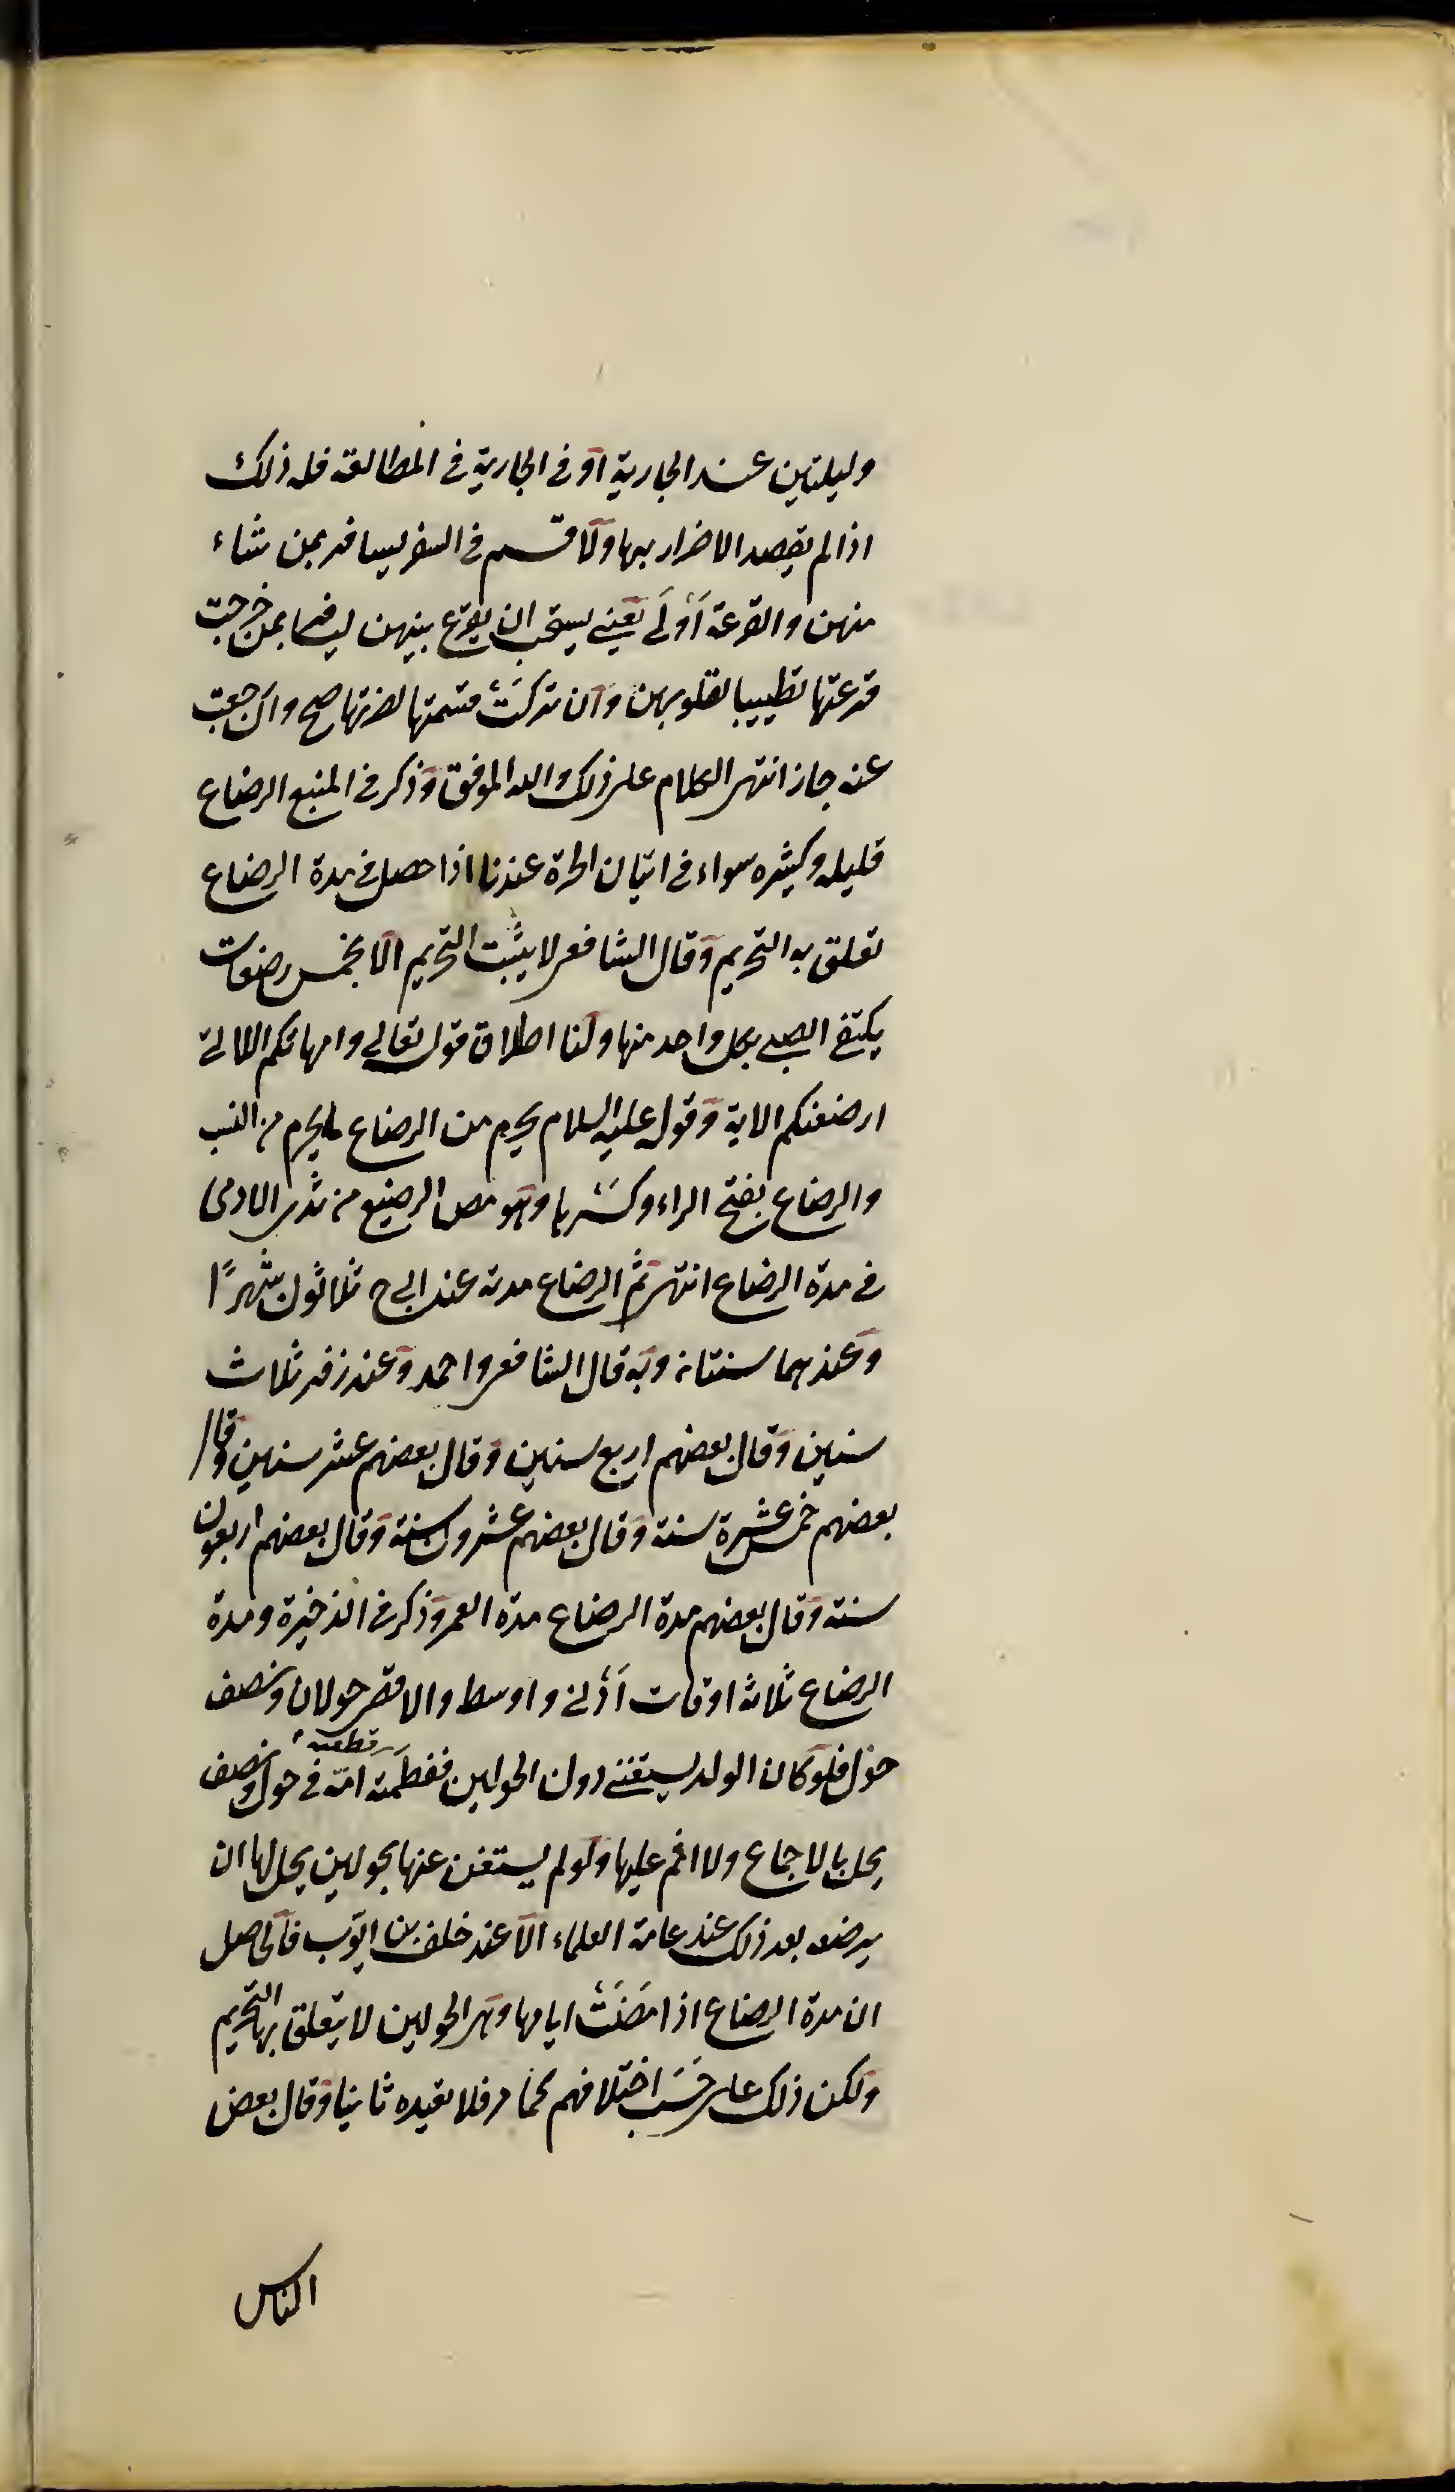 وليلتين عند الجارية او في الجارية في المطالقة فله ذلك
اذا لم يقصد الاضرار بها ولا قسم في السفر يسافر بمن شاء
منهن والقرعة أَوْلَى يعني يستحب ان يقرع بينهن ليسافر بمن خرجت
قرعتها تطييبا لقلوبهن وان تركَتْ قسمتها لضرتها صح وان رجعت
عنه جاز انتهى الكلام على ذلك والله الموفق وذكر في المنبع الرضاع
قليله وكثيره سواء في اتيان الحرة عندنا اذا حصل في مدة الرضاع
تعلق به التحريم وقال الشافعى لا يثبت التحريم الا بخمس رضعات
يكتفى الصبي بكل واحد منها ولنا اطلاق قوله تعالى وامهاتكم اللاتي
ارضعنكم الاية وقوله عليه السلام يحرم من الرضاع ما يحرم من النسب
والرضاع بفتح الراء وكسْرها وهو مص الرضيع من ثدى الادمى
في مدة الرضاع انتهى ثم الرضاع مدته عند ابي ح ثلاثون شهرًا
وعندهما سنتان وبه قال الشافعى واحمد وعند زفر ثلاث
سنين وقال بعضهم اربع سنين وقال بعضهم عشر سنين وقال
بعضهم خمس عشرة سنة وقال بعضهم عشرون سنة وقال بعضهم اربعون
سنة وقال بعضهم مدة الرضاع مدة العمر وذكر في الذخيرة ومدة
الرضاع ثلاثة اوقات أدْنى واوسط والاقصى حولان ونصف
حول فلو كان الولد يستغني دون الحولين ففطمَته امّه في حول ونصف
قطعته
يحل بالاجماع ولا اثم عليها ولو لم يستغن عنها بحولين يحل لها ان
يرضعه بعد ذلك عند عامة العلماء الا عند خلف بن ايوب فالحاصل
ان مدة الرضاع اذا مَضَتْ ايامها وهى الحولين لا يتعلق بها التحريم
ولكن ذلك على حسَب اختلافهم كما مر فلا نعيده ثانيا وقال بعض
الناس